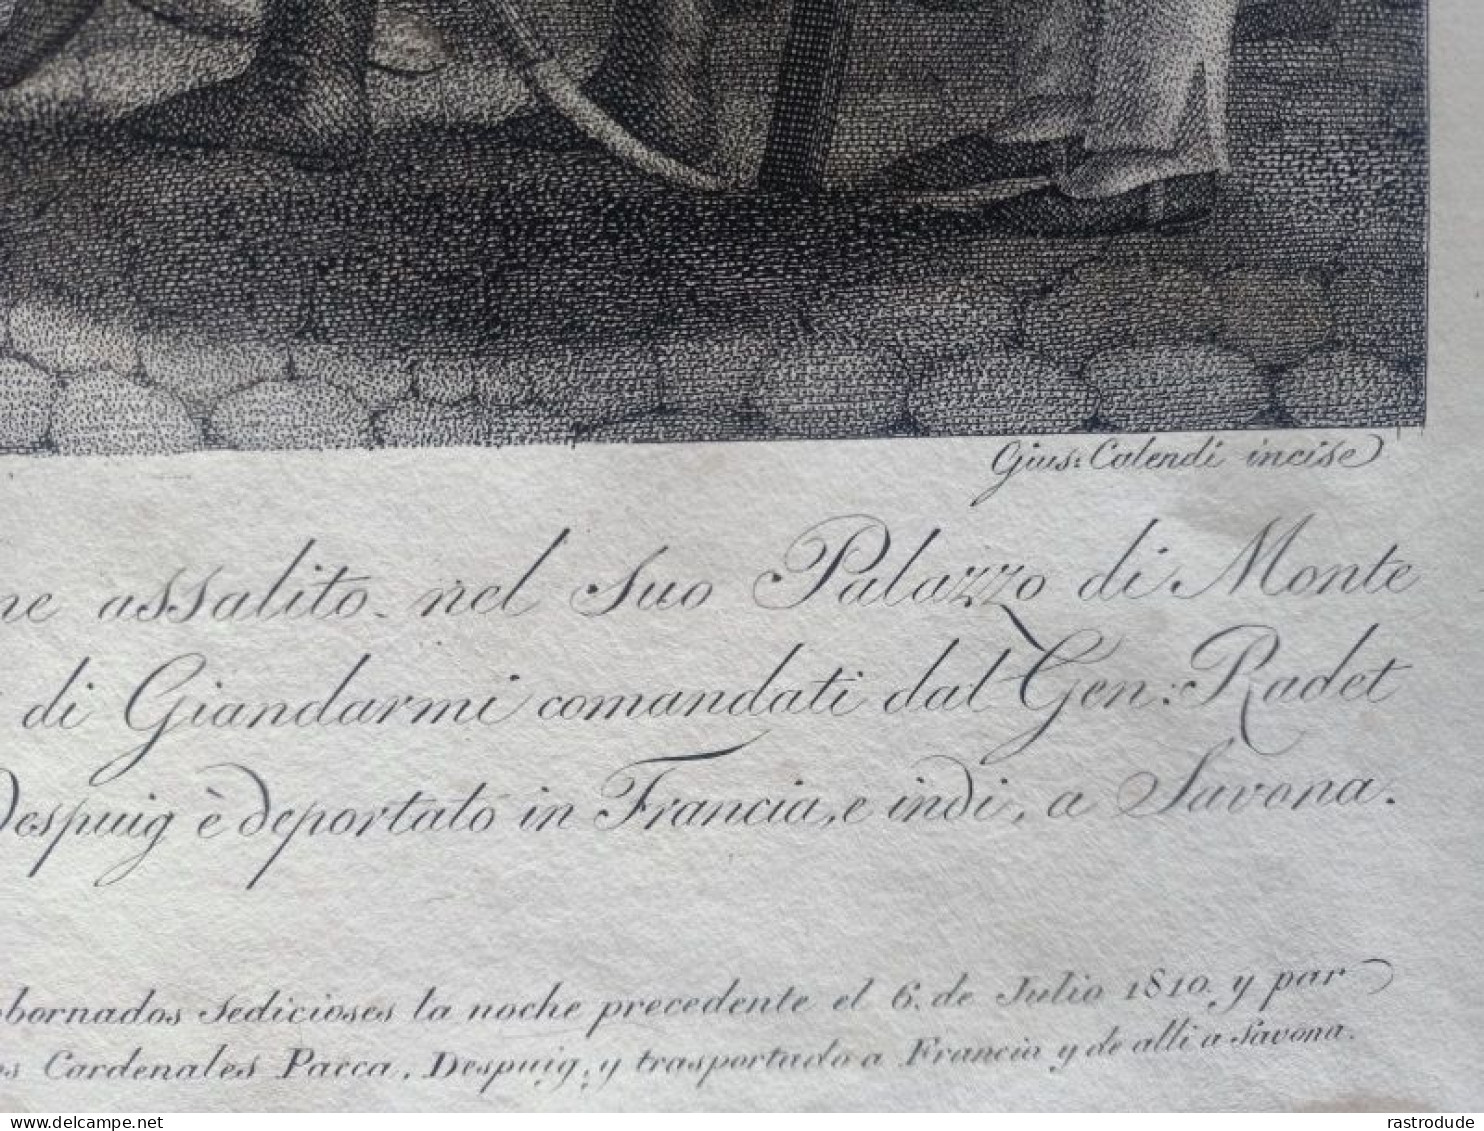 Gius: Calendi incise
ne assalito nel suo Palazzo di Monte
di Giandarmi comandati dal Gen: Radet
Despuig è deportato in Francia, e indi, a Savona.
obornados Sedicioses la noche precedente el 6. de Julio 1810. y par
os Cardenales Pacca, Despuig, y trasportado a Francia y de alli a Savona.
delcampe.net
rastrodude